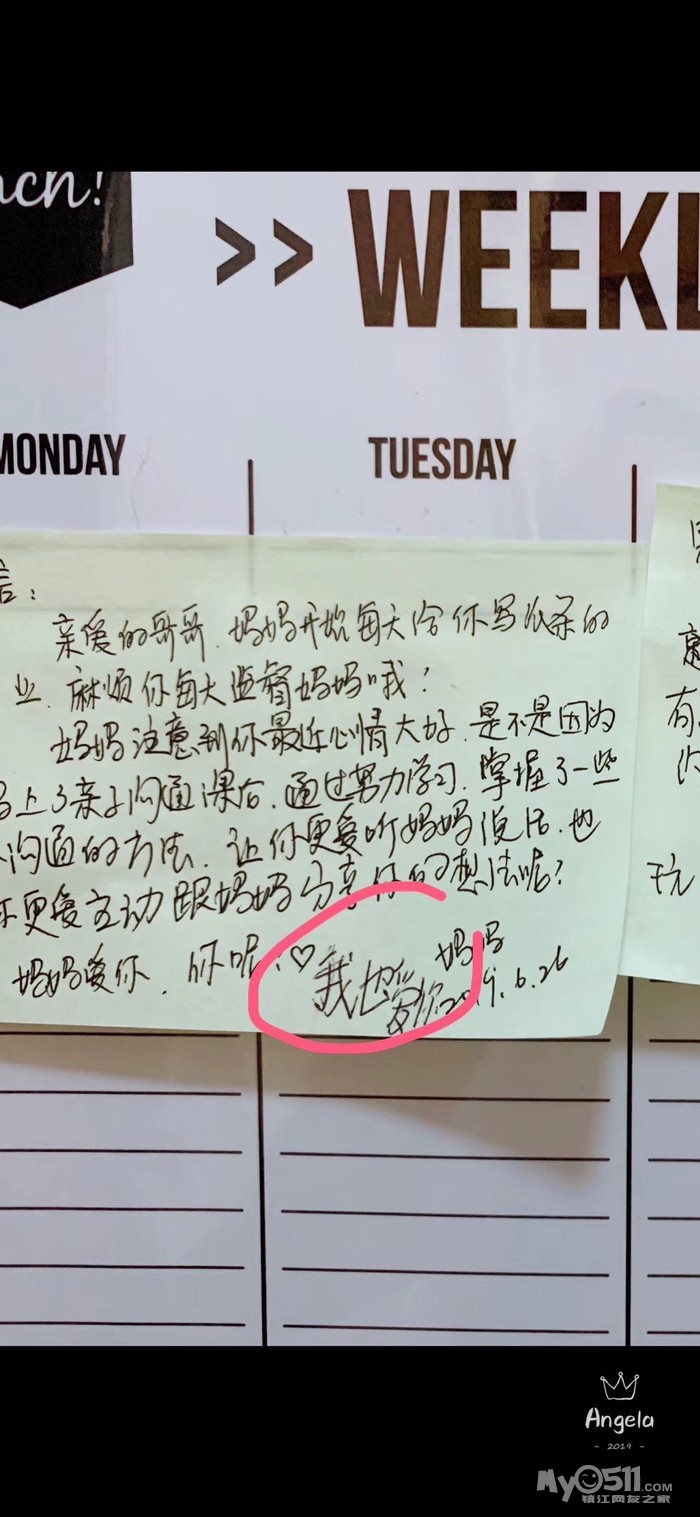 ach!
>> WEEKL
MONDAY
TUESDAY
言：
亲爱的哥哥，妈妈开始每天给你写纸条的
业，麻烦你每天监督妈妈哦！
妈妈注意到你最近心情大好，是不是因为
妈上了亲子沟通课后，通过努力学习，掌握了一些
沟通的方法，让你更爱听妈妈说话，也
你更爱主动跟妈妈分享你的想法呢？
妈妈爱你，你呢？♡
我也爱你
妈妈
2019.6.26
有
玩
Angela
- 2019 -
MyO511.COM
镇江网友之家